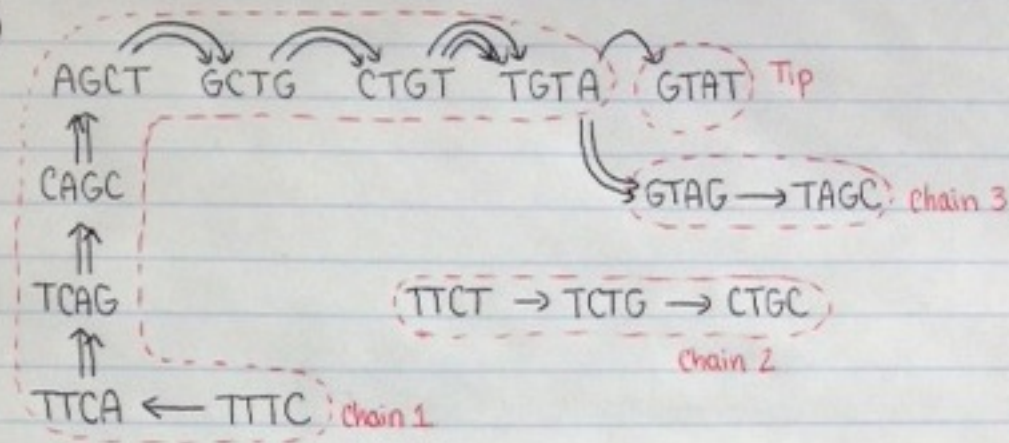 AGCT GCTG CTGT TGTA GTAT Tip
CAGC GTAG TAGC Chain 3
TCAG TTCT TCTG CTGC
Chain 2
TTCA TTTC Chain 1